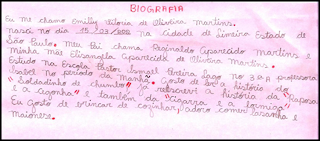 BIOGRAFIA
Eu me chamo Emilly Vitoria de Oliveira Martins.
nasci no dia 15/03/ na cidade de Limeira Estado de
São Paulo. Meu Pai chama Reginaldo Aparecido Martins e
minha mãe Elisangela Aparecida de Oliveira Martins.
Estudo na Escola Pastor Ismael Pereira Lago no 3º A Professora
Isabel no período da manhã. Gosto de ouvir a história do
"Soldadinho de chumbo" já reescrevi a história da "Raposa
e a cegonha" e também da "Cigarra e a formiga".
Eu Gosto de brincar de cozinhar, adoro comer lasanha e
maionese.